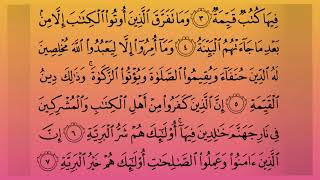 فِيهَا كُتُبٌ قَيِّمَةٌ ٣ وَمَا تَفَرَّقَ الَّذِينَ أُوتُوا الْكِتَٰبَ إِلَّا مِنْ
بَعْدِ مَا جَاءَتْهُمُ الْبَيِّنَةُ ٤ وَمَا أُمِرُوا إِلَّا لِيَعْبُدُوا اللَّهَ مُخْلِصِينَ
لَهُ الدِّينَ حُنَفَاءَ وَيُقِيمُوا الصَّلَوٰةَ وَيُؤْتُوا الزَّكَوٰةَ وَذَٰلِكَ دِينُ
الْقَيِّمَةِ ٥ إِنَّ الَّذِينَ كَفَرُوا مِنْ أَهْلِ الْكِتَٰبِ وَالْمُشْرِكِينَ
فِي نَارِ جَهَنَّمَ خَٰلِدِينَ فِيهَا أُولَٰئِكَ هُمْ شَرُّ الْبَرِيَّةِ ٦ إِنَّ
الَّذِينَ ءَامَنُوا وَعَمِلُوا الصَّٰلِحَٰتِ أُولَٰئِكَ هُمْ خَيْرُ الْبَرِيَّةِ ٧